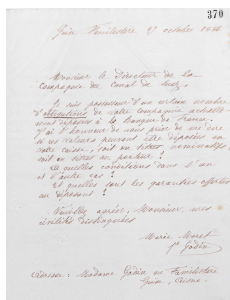 370
Guise Familistère 27 octobre 18
Monsieur le Directeur de la
Compagnie du Canal de Suez,
Je suis possesseur d'un certain nombre
d'obligations de votre compagnie actuelle-
ment déposées à la Banque de France.
J'ai l'honneur de vous prier de me dire
si ces valeurs peuvent être déposées en
votre caisse, soit en titres nominatifs,
soit en titres au porteur ?
À quelles conditions dans l'un
et l'autre cas ?
Et quelles sont les garanties offertes
au déposant ?
Veuillez agréer, Monsieur, mes
civilités distinguées
Marie Moret
Vve Godin
Adresse : Madame Godin au Familistère
Guise, Aisne.